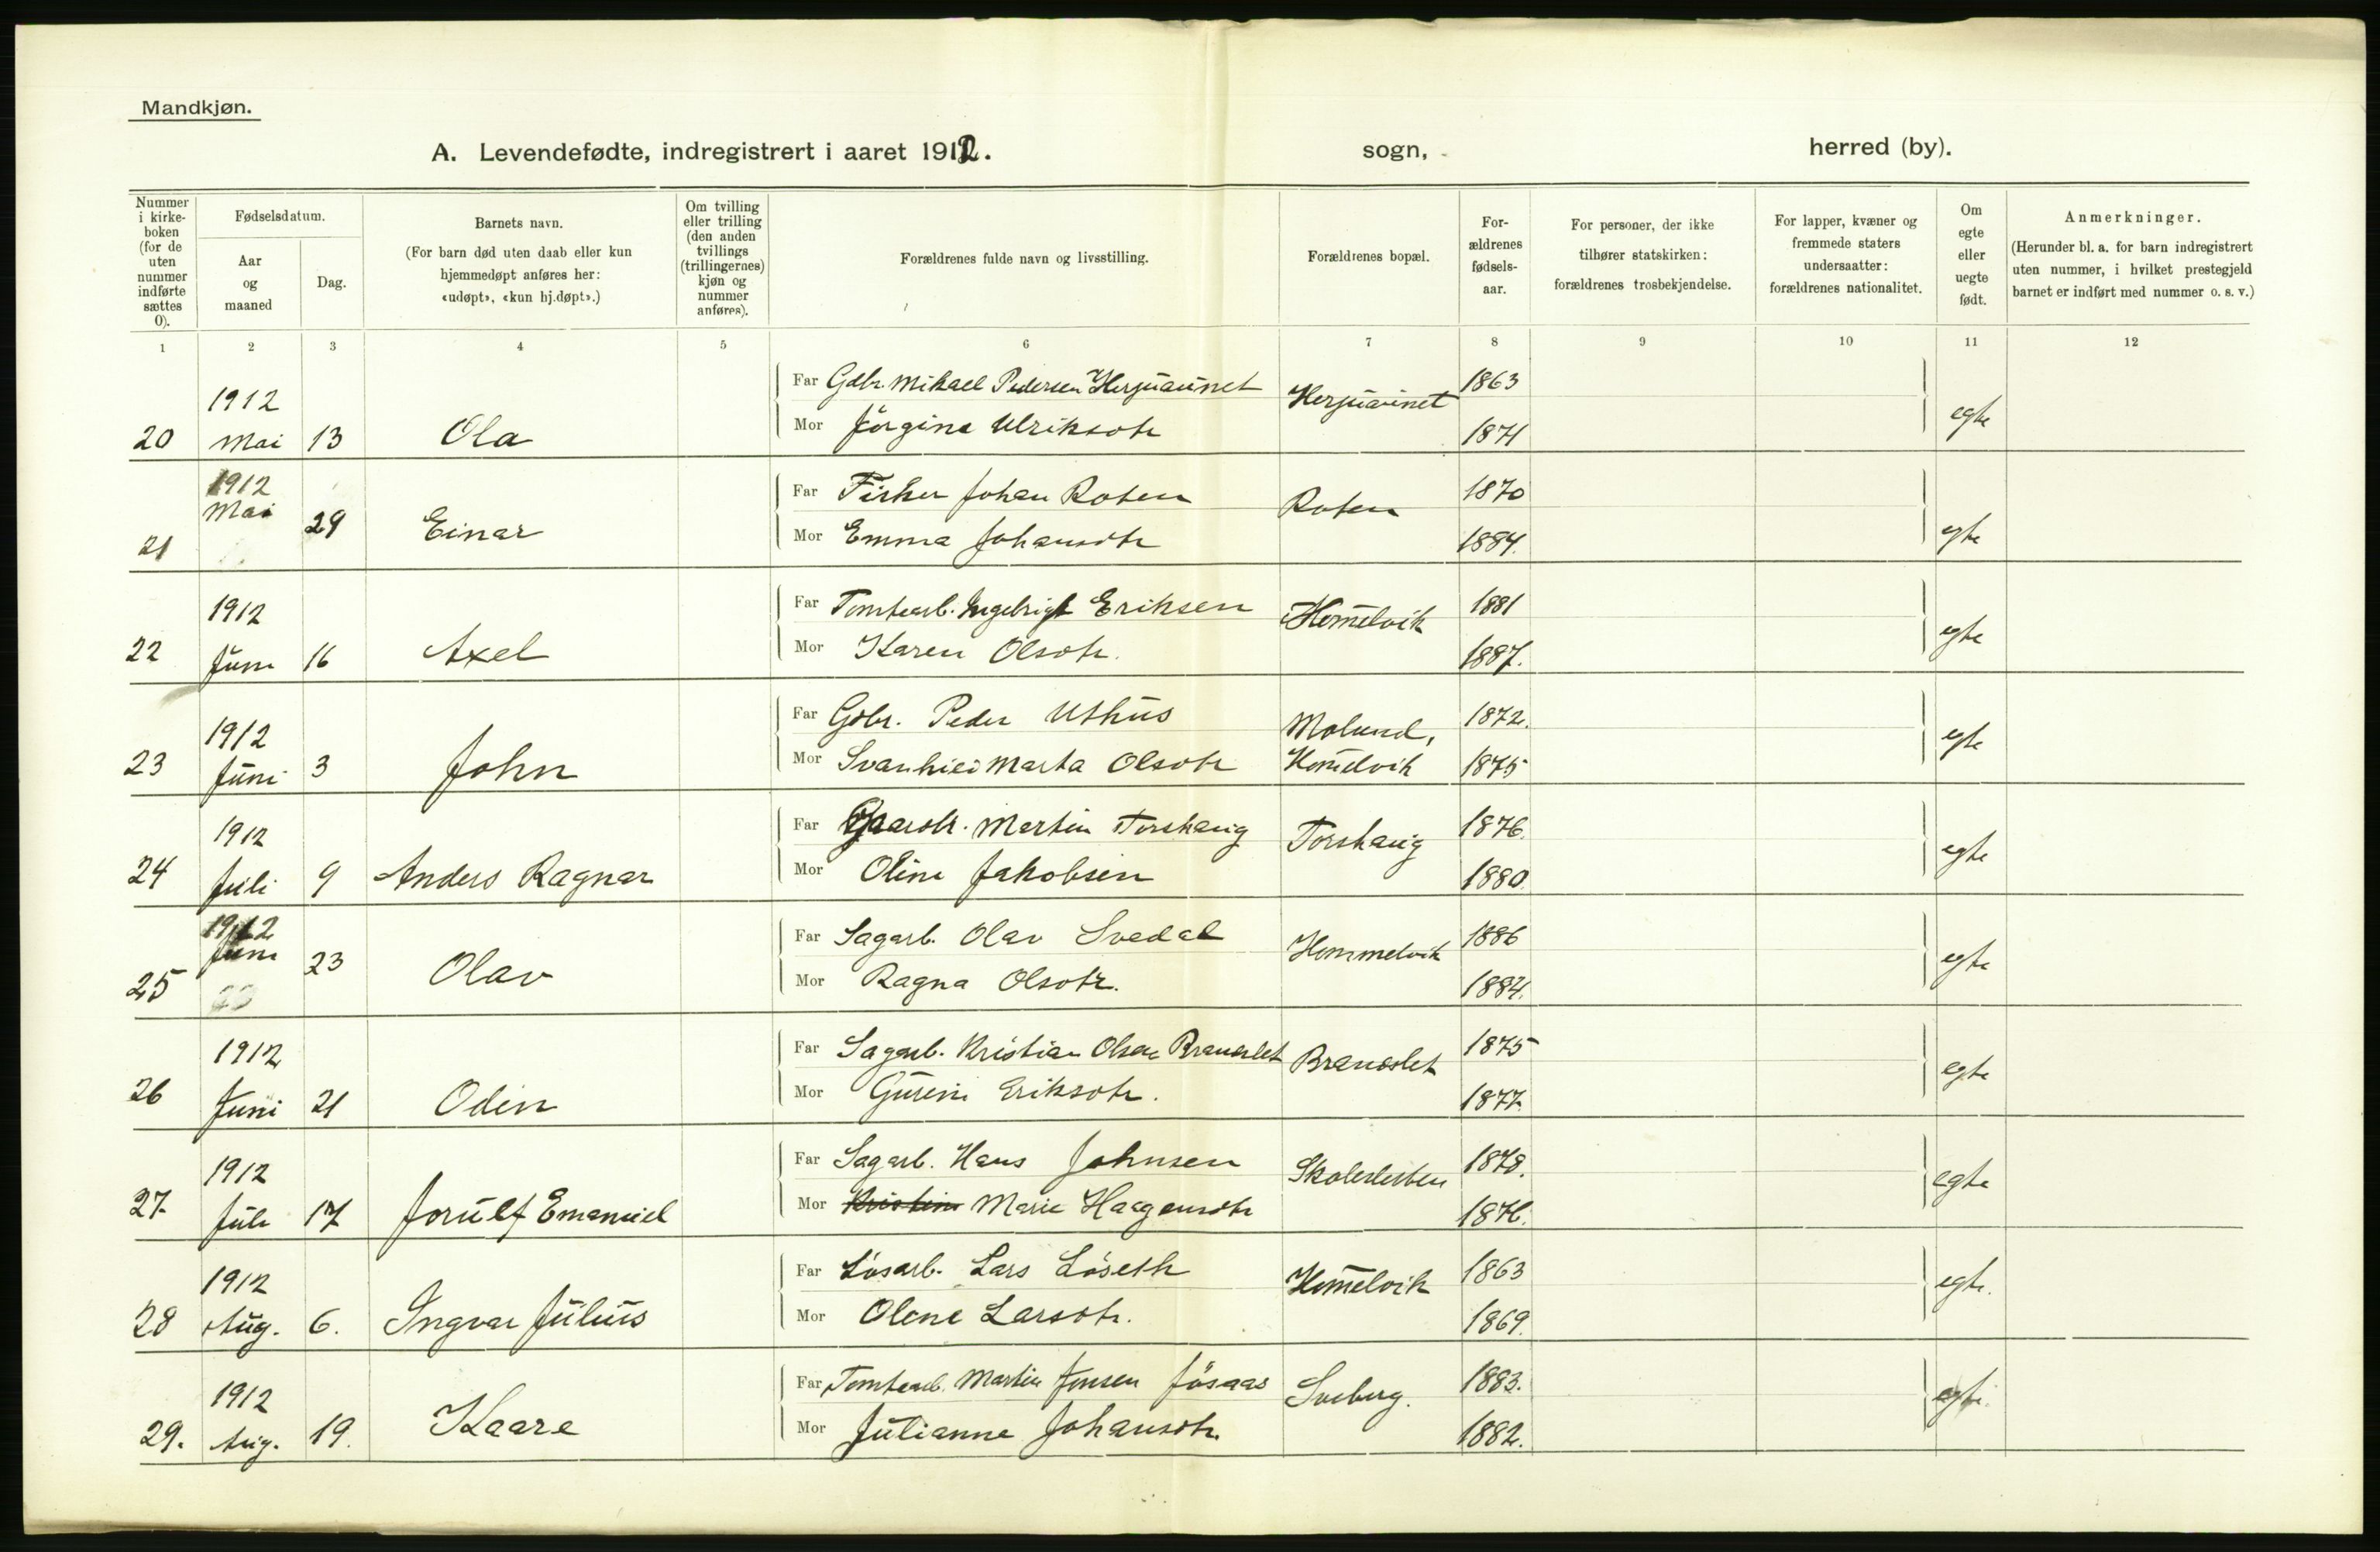 Mandkjøn.
A. Levendefødte, indregistrert i aaret 1912. sogn, herred (by).
Nummer i kirkeboken (for de uten nummer indførte sættes 0).
Fødselsdatum.
Aar og maaned
Dag.
Barnets navn.
(For barn død uten daab eller kun hjemmedøpt anføres her: «udøpt», «kun hj.døpt».)
Om tvilling eller trilling (den anden tvillings (trillingernes) kjøn og nummer anføres).
Forældrenes fulde navn og livsstilling.
Forældrenes bopæl.
Forældrenes fødselsaar.
For personer, der ikke tilhører statskirken: forældrenes trosbekjendelse.
For lapper, kvæner og fremmede staters undersaatter: forældrenes nationalitet.
Om egte eller uegte født.
Anmerkninger.
(Herunder bl. a. for barn indregistrert uten nummer, i hvilket prestegjeld barnet er indført med nummer o. s. v.)
1 2 3 4 5 6 7 8 9 10 11 12
Far Gdbr. Mikael Pedersen Herjuaunet Herjuaunet 1863
20 1912 Mai 13 Ola egte
Mor Jörgine Ulriksdtr 1871
Far Fisker Johan Roten Roten 1870
21 1912 Mai 29 Einar egte
Mor Emma Johansdtr 1884.
Far Tomtearb. Ingebrigt Eriksen Hom̅elvik 1881
22 1912 Juni 16 Axel egte
Mor Karen Olsdtr. 1887.
Far Gdbr. Peder Uthus Molund, 1872.
23 1912 Juni 3 John egte
Mor Svanhild Marta Olsdtr Hom̅elvik 1875
Far Gaardbr. Martin Torshaug Torshaug 1876.
24 1912 Juli 9 Anders Ragnar egte
Mor Oline Jakobsen 1880
Far Sagarb. Olav Svedal Hommelvik 1886
25 1912 Juni 23 Olav egte
Mor Ragna Olsdtr. 1884.
Far Sagarb. Kristian Olsen Brandslet Brandslet 1875
26 1912 Juni 21 Odin egte
Mor Gurine Eriksdtr. 1877.
Far Sagarb. Hans Johnsen 1878.
27 1912 Juli 17 Jorulf Emanuel egte
Mor Kristine Marie Haagensdtr 1876.
Far Løsarb. Lars Löseth Hom̅elvik 1863
28 1912 Aug. 6. Ingvar Julius egte.
Mor Olene Larsdtr. 1869.
Far Tomtearb. Martin Jensen Jøsaas Sveberg. 1883.
29. 1912 Aug. 19. Kaare egte.
Mor Julianne Johansdtr. 1882.